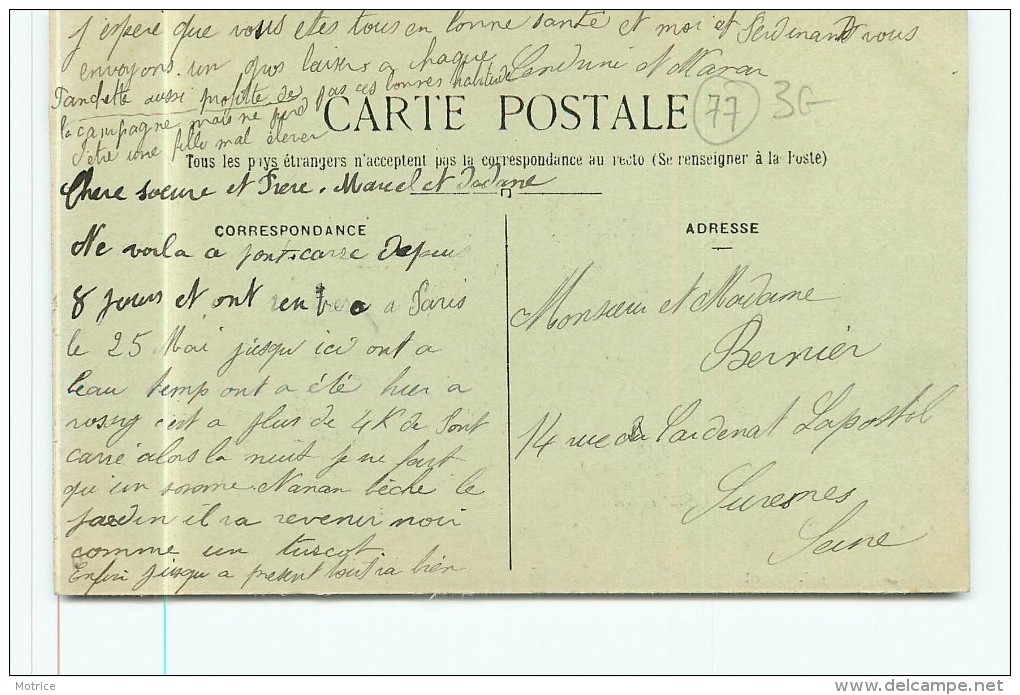 j'espère que vous etes tous en bonne santé et moi et Ferdinand vous
envoyons un gros baiser a chaque
Fandette aussi profitte de
la campagne mais ne perd pas ces bonnes habitude
d'etre une fille mal élever
CARTE POSTALE
77
3G
Tous les pays étrangers n'acceptent pas la correspondance au recto (Se renseigner à la Poste)
Chere soeure et Frere. Marcel et Dadane
CORRESPONDANCE
Me voila a pontcarre Depuis
8 jours et ont rentrera a Paris
le 25 Mai jusqu ici ont a
beau temp ont a été hier a
rosny c'est a plus de 4K de Pont
carré alors la nuit je ne fait
qu'un somme. Nanan bêche le
jardin il va revenir noir
comme un turcot.
Enfin jusqu a present tout va bien
ADRESSE
Monsieur et Madame
Bernier
14 rue du Cardenal Lapostol
Suresnes
Seine
Motrice
www.delcampe.net